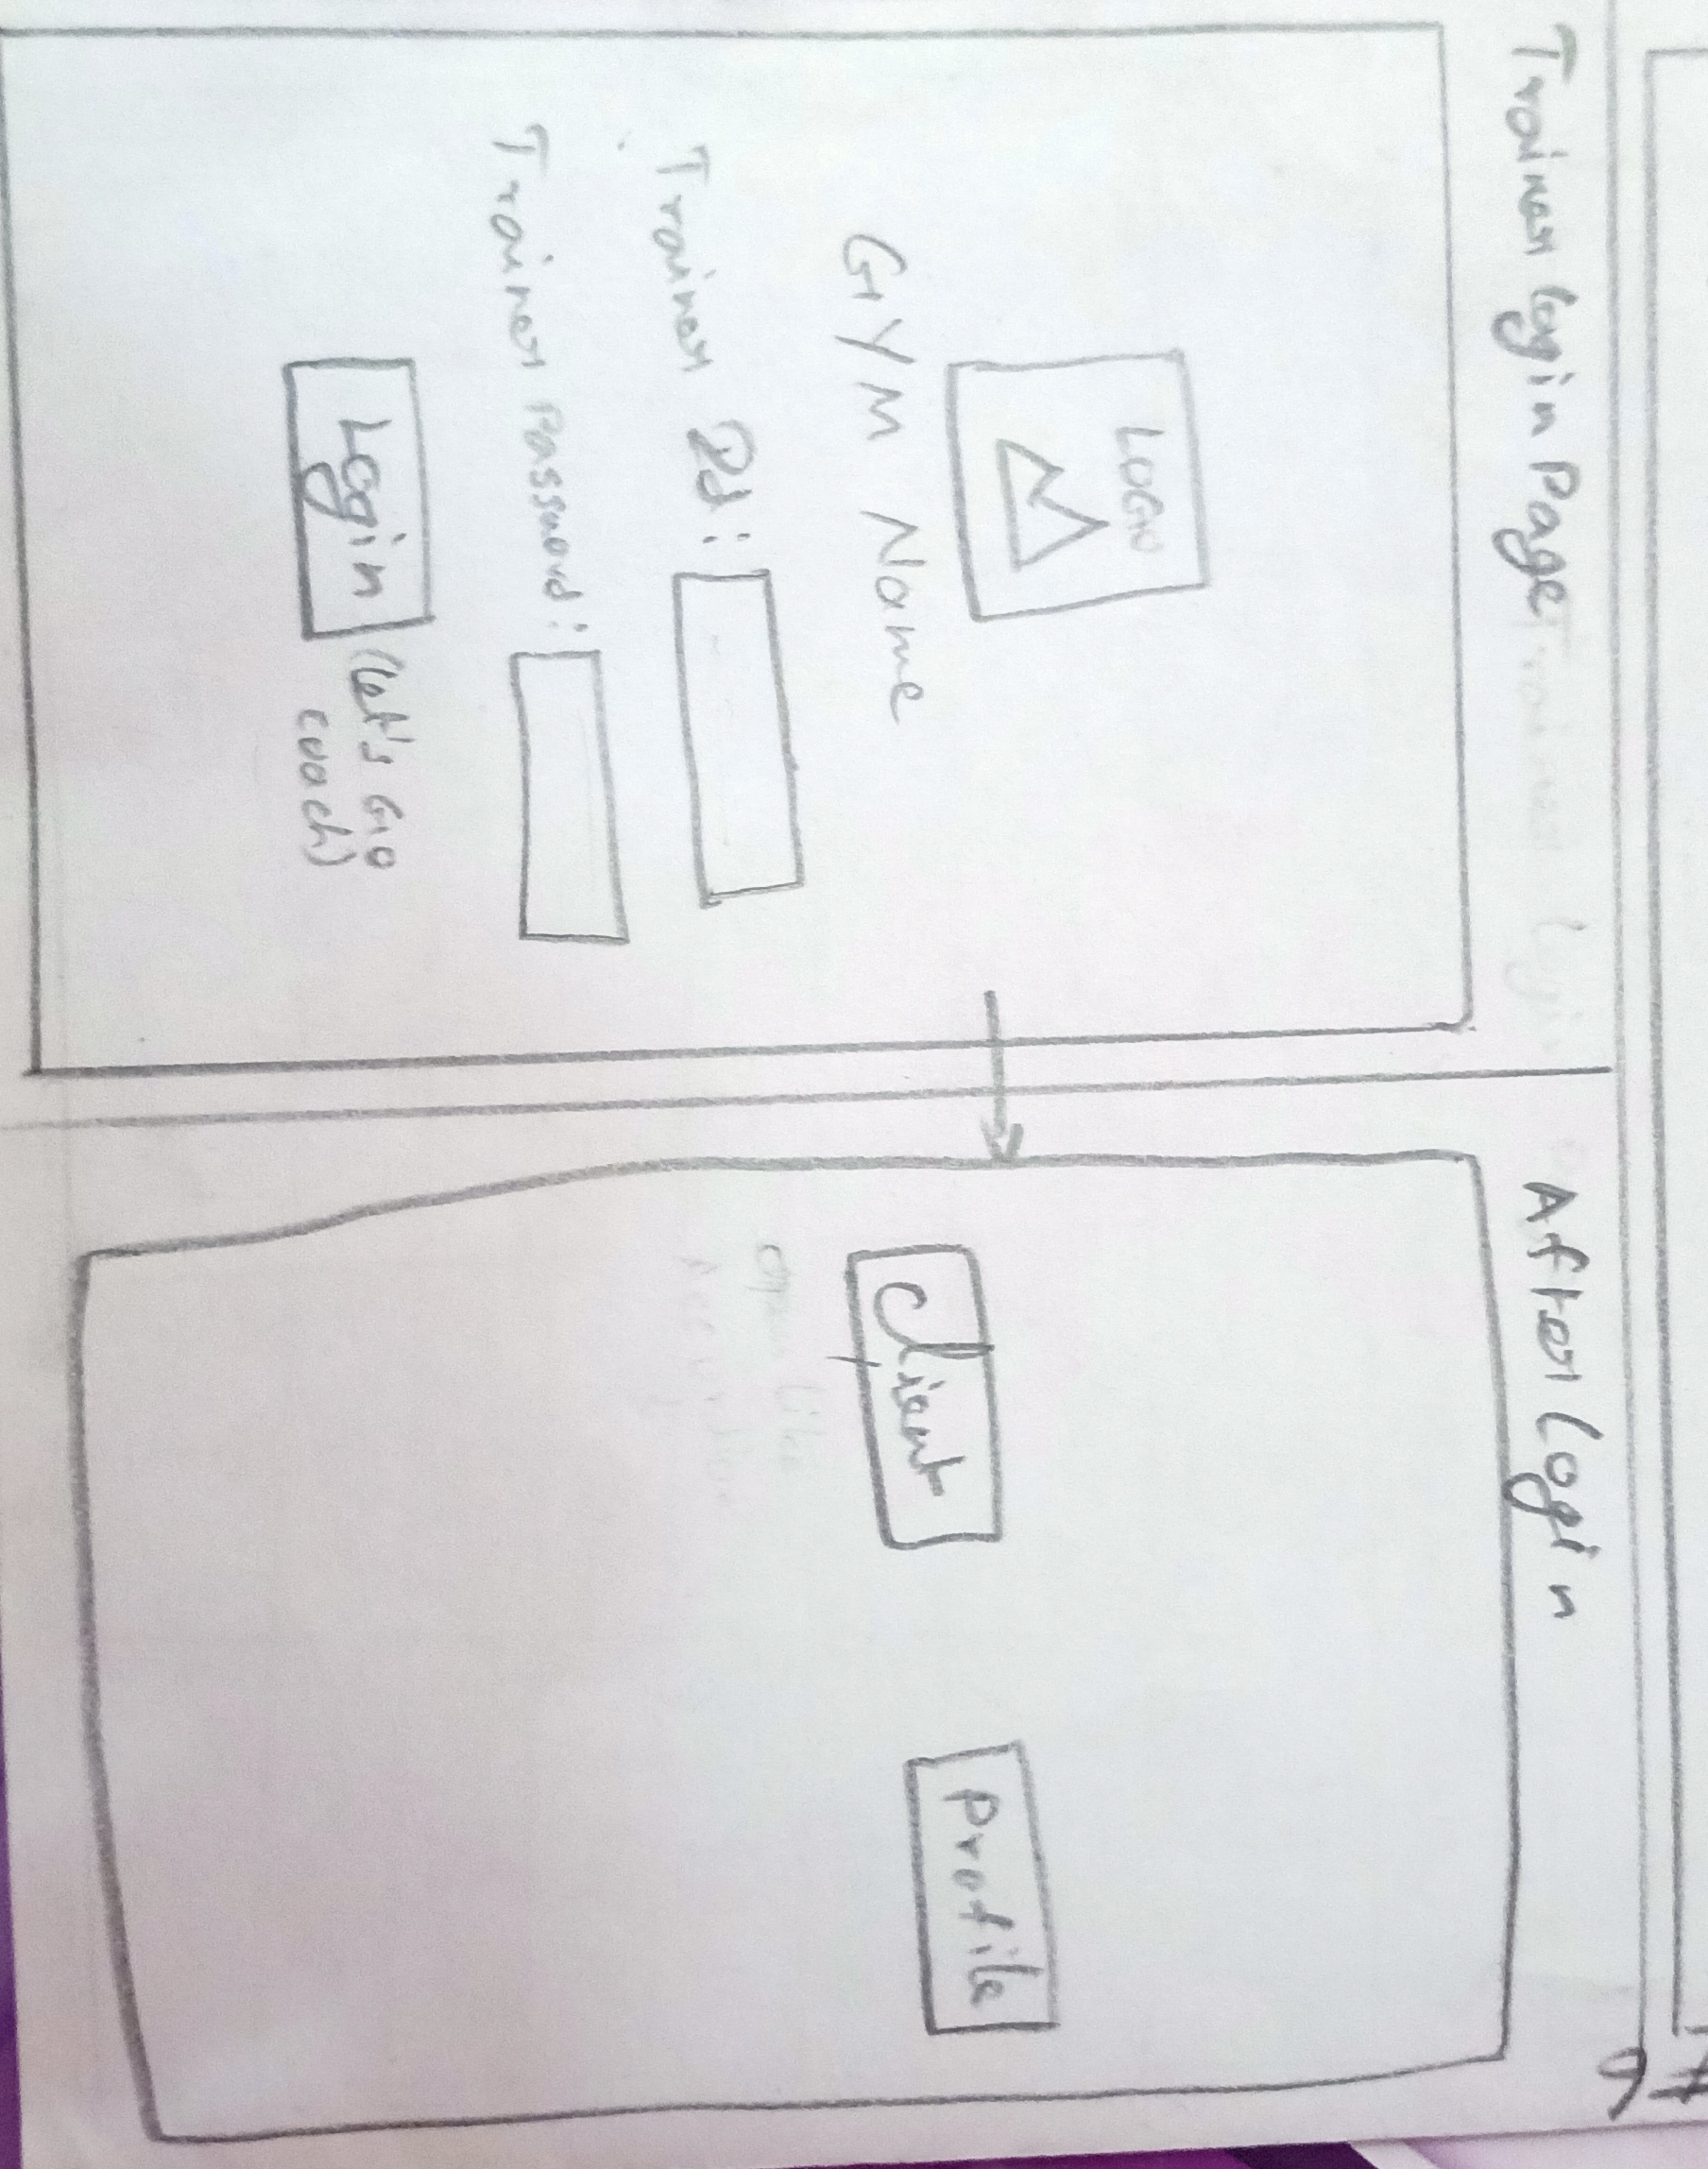 Trainer login Page
LOGO
GYM Name
Trainer Id:
Trainer Password:
Login (Let's Go
coach)
After login
Client
Profile